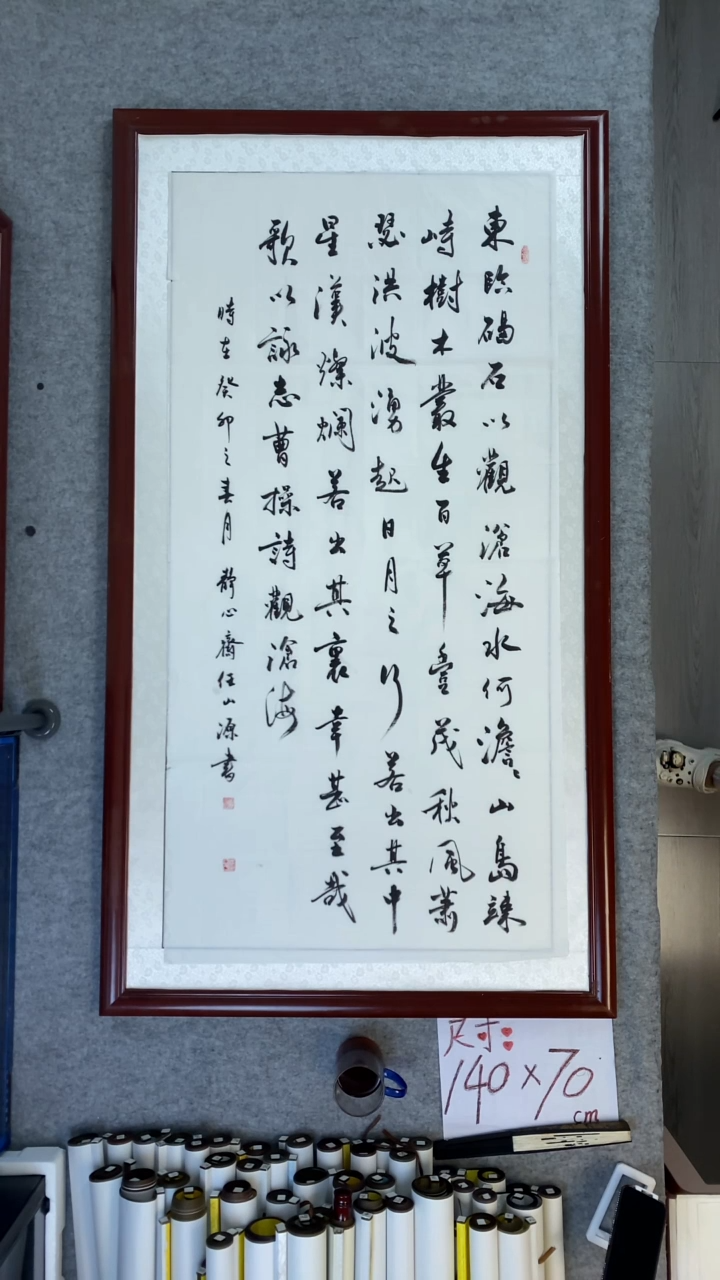 東臨碣石以觀滄海水何澹〻山島竦
峙樹木叢生百草豐茂秋風蕭
瑟洪波湧起日月之行若出其中
星漢燦爛若出其裏幸甚至哉
歌以詠志曹操詩觀滄海
時在癸卯之春月靜心齋任山源書
尺寸:
140×70
cm